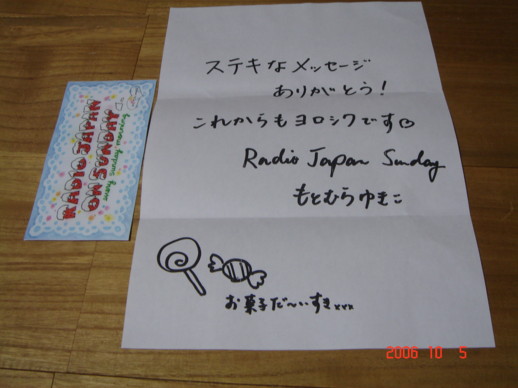 ステキなメッセージ
ありがとう!
これからもヨロシクです♡
Radio Japan Sunday
もとむらゆきこ
お菓子だ〜いすきxxx
RADIO JAPAN
ON SUNDAY
2006 10 5